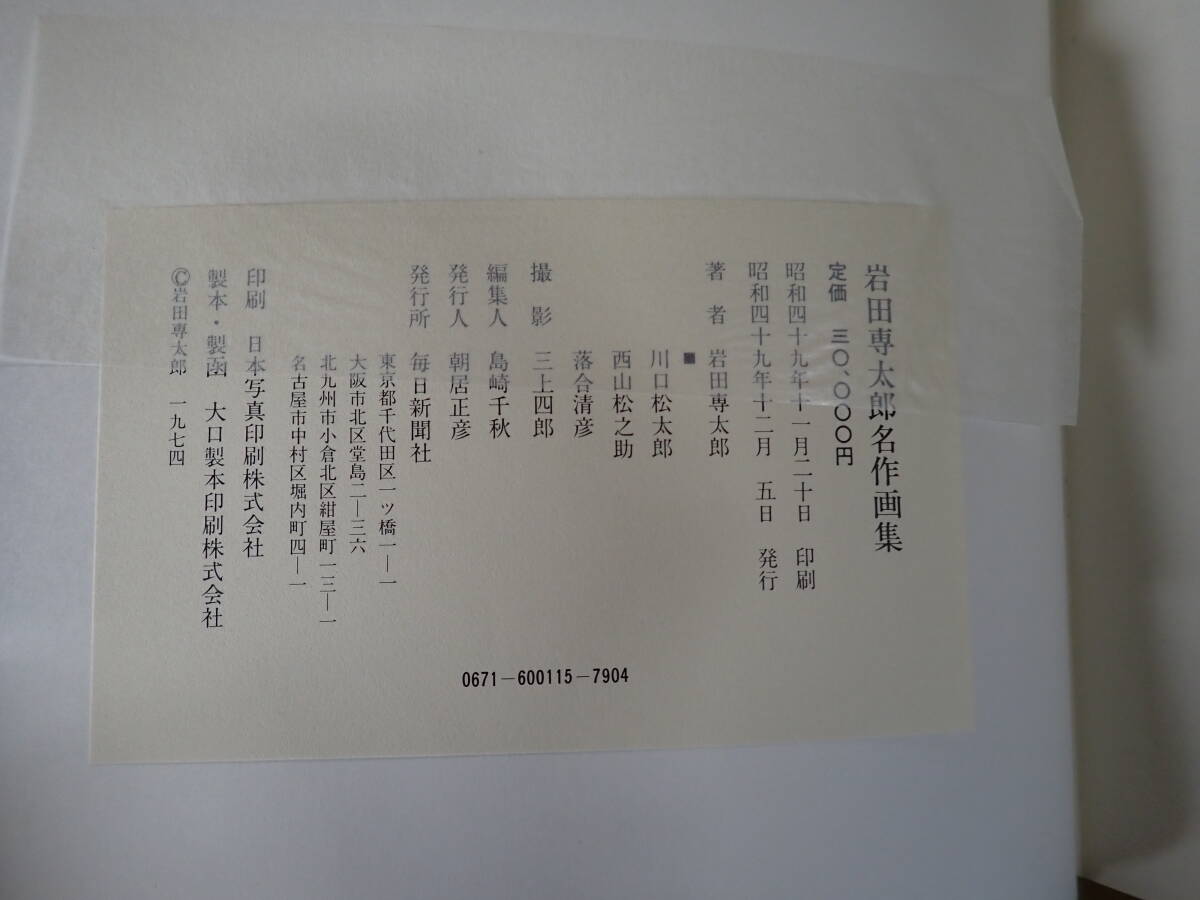 岩田専太郎名作画集
定価　三〇、〇〇〇円
昭和四十九年十一月二十日　印刷
昭和四十九年十二月　五日　発行
著　者　岩田専太郎
■
川口松太郎
西山松之助
落合清彦
撮　影　三上四郎
編集人　島崎千秋
発行人　朝居正彦
発行所　毎日新聞社
東京都千代田区一ツ橋一―一
大阪市北区堂島二―三六
北九州市小倉北区紺屋町一三―一
名古屋市中村区堀内町四―一
印刷　日本写真印刷株式会社
製本・製函　大口製本印刷株式会社
©岩田専太郎　一九七四
0671―600115―7904